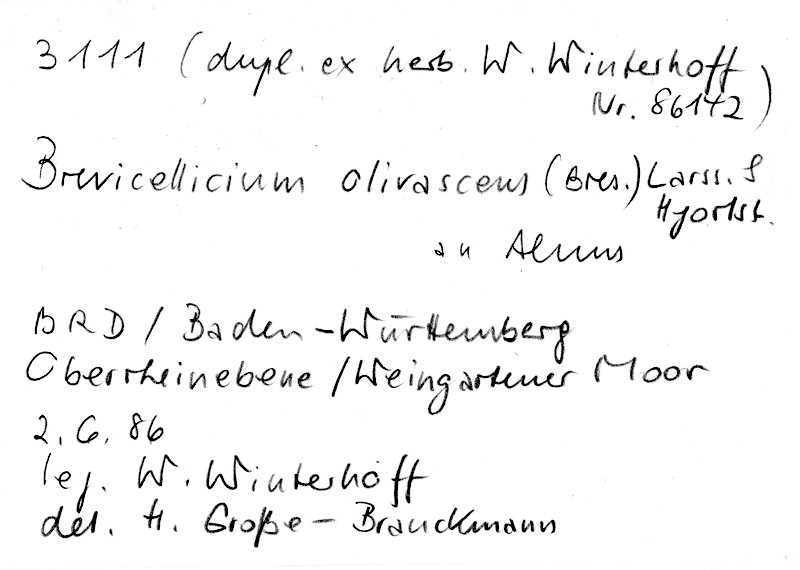 3111 (dupl. ex herb. W. Winterhoff
Nr. 86142)
Brevicellicium olivascens (Bres.) Larss. &
Hjortst.
an Alnus
BRD / Baden-Württemberg
Oberrheinebene / Weingartener Moor
2. 6. 86
leg. W. Winterhoff
det. H. Große-Brauckmann